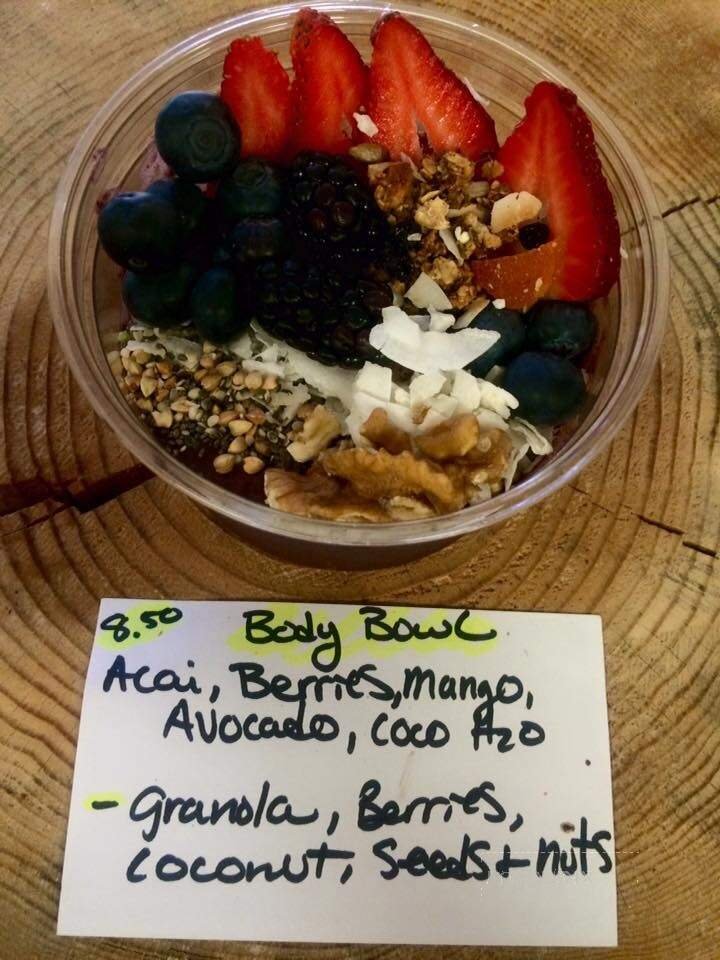 8.50 Body Bowl
Acai, Berries, Mango,
Avocado, Coco H2O
- Granola, Berries,
Coconut, Seeds + nuts